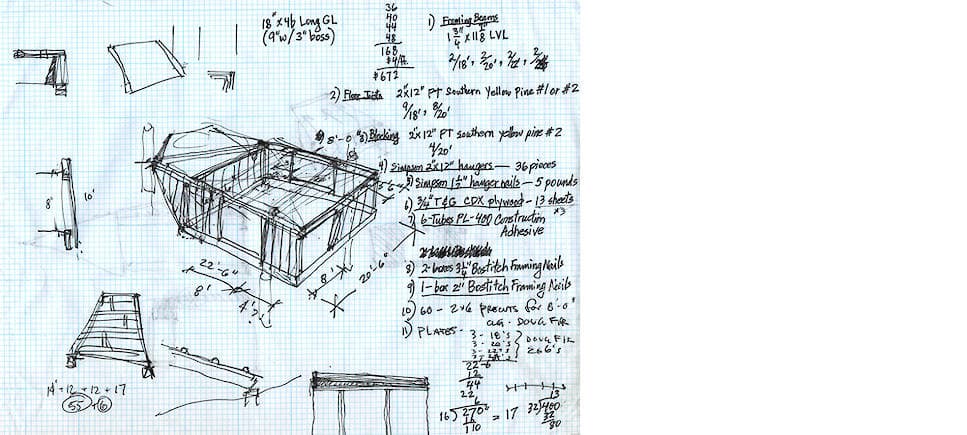 18" x 46 Long GL
(9" w/ 3" boss)
36
40
44
48
168
$4/ft.
$672
1) Framing Beams
1 3/4" x 11 7/8" LVL
2/18', 2/20',
2) Floor Joists 2"x12" PT Southern Yellow Pine #1 or #2
9/18', 8/20'
8'-0"
3) Blocking 2"x12" PT southern yellow pine #2
4/20'
4) Simpson 2"x12" hangers — 36 pieces
5) Simpson 1 1/2" hanger nails — 5 pounds
6) 3/4" T&G CDX plywood - 13 sheets
7) 6-Tubes PL-400 Construction
Adhesive
8) 2-boxes 3 1/4" Bostitch Framing Nails
9) 1-box 2" Bostitch Framing Nails
10) 60 - 2x6 precuts for 8'-0"
clg. DOUG FIR
11) PLATES -
3 - 18's
3 - 20's
DOUG FIR
2x6's
10'
8'
22'-6"
8'
4'
8'
20'-6"
14 + 12 + 12 + 17
55 + 6
22-6
12
44
22
6
16) 270 = 17
16
110
13
32) 400
32
80